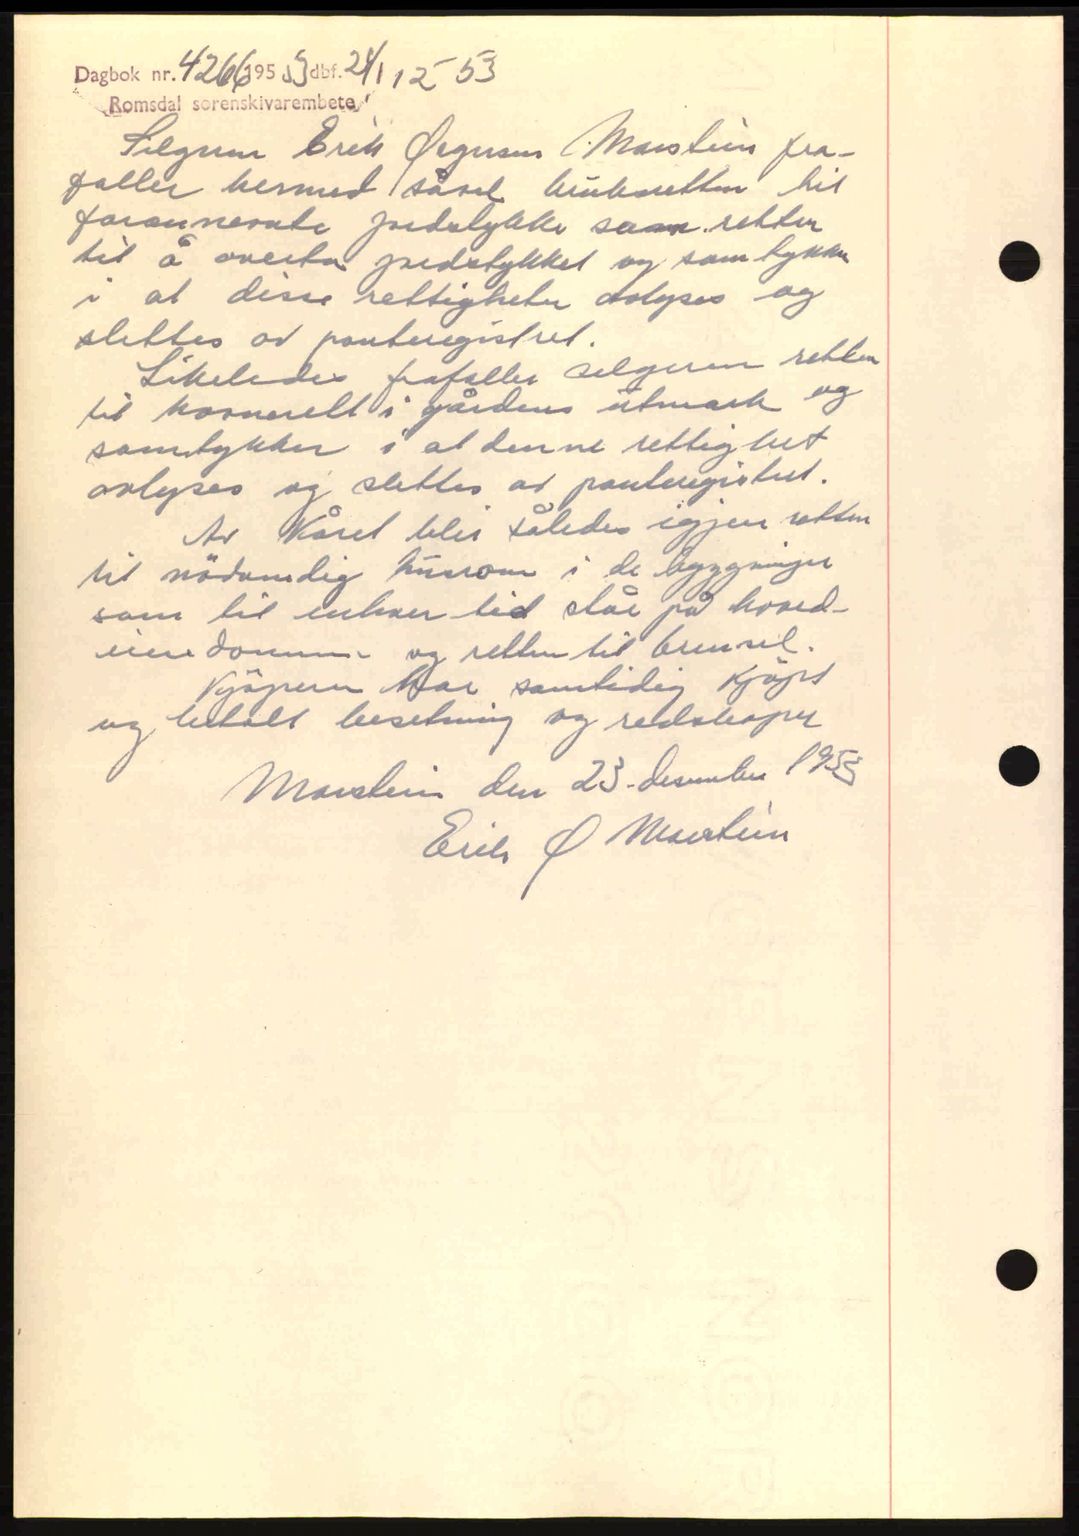 Dagbok nr. 4266 1953 dbf. 24/12 53
Romsdal sorenskriverembete
Selgeren Erik Marstein fra-
faller hermed såvel bruksretten til
forannevnte jordstykke som retten
til å overta jordstykket og samtykker
i at disse rettigheter avlyses og
slettes av panteregistret.
Likeledes frafaller selgeren retten
til i gårdens utmark og
samtykker i at denne rettighet
avlyses og slettes av panteregistret.
Av Kåret blir således igjen retten
til nödvendig husrom i de bygninger
som til enhver tid står på hoved-
eiendommen og retten til brensel.
Kjöperen har samtidig kjöpt
og betalt besetning og redskaper
Marstein den 23. desember 1953
Erik Ø Marstein